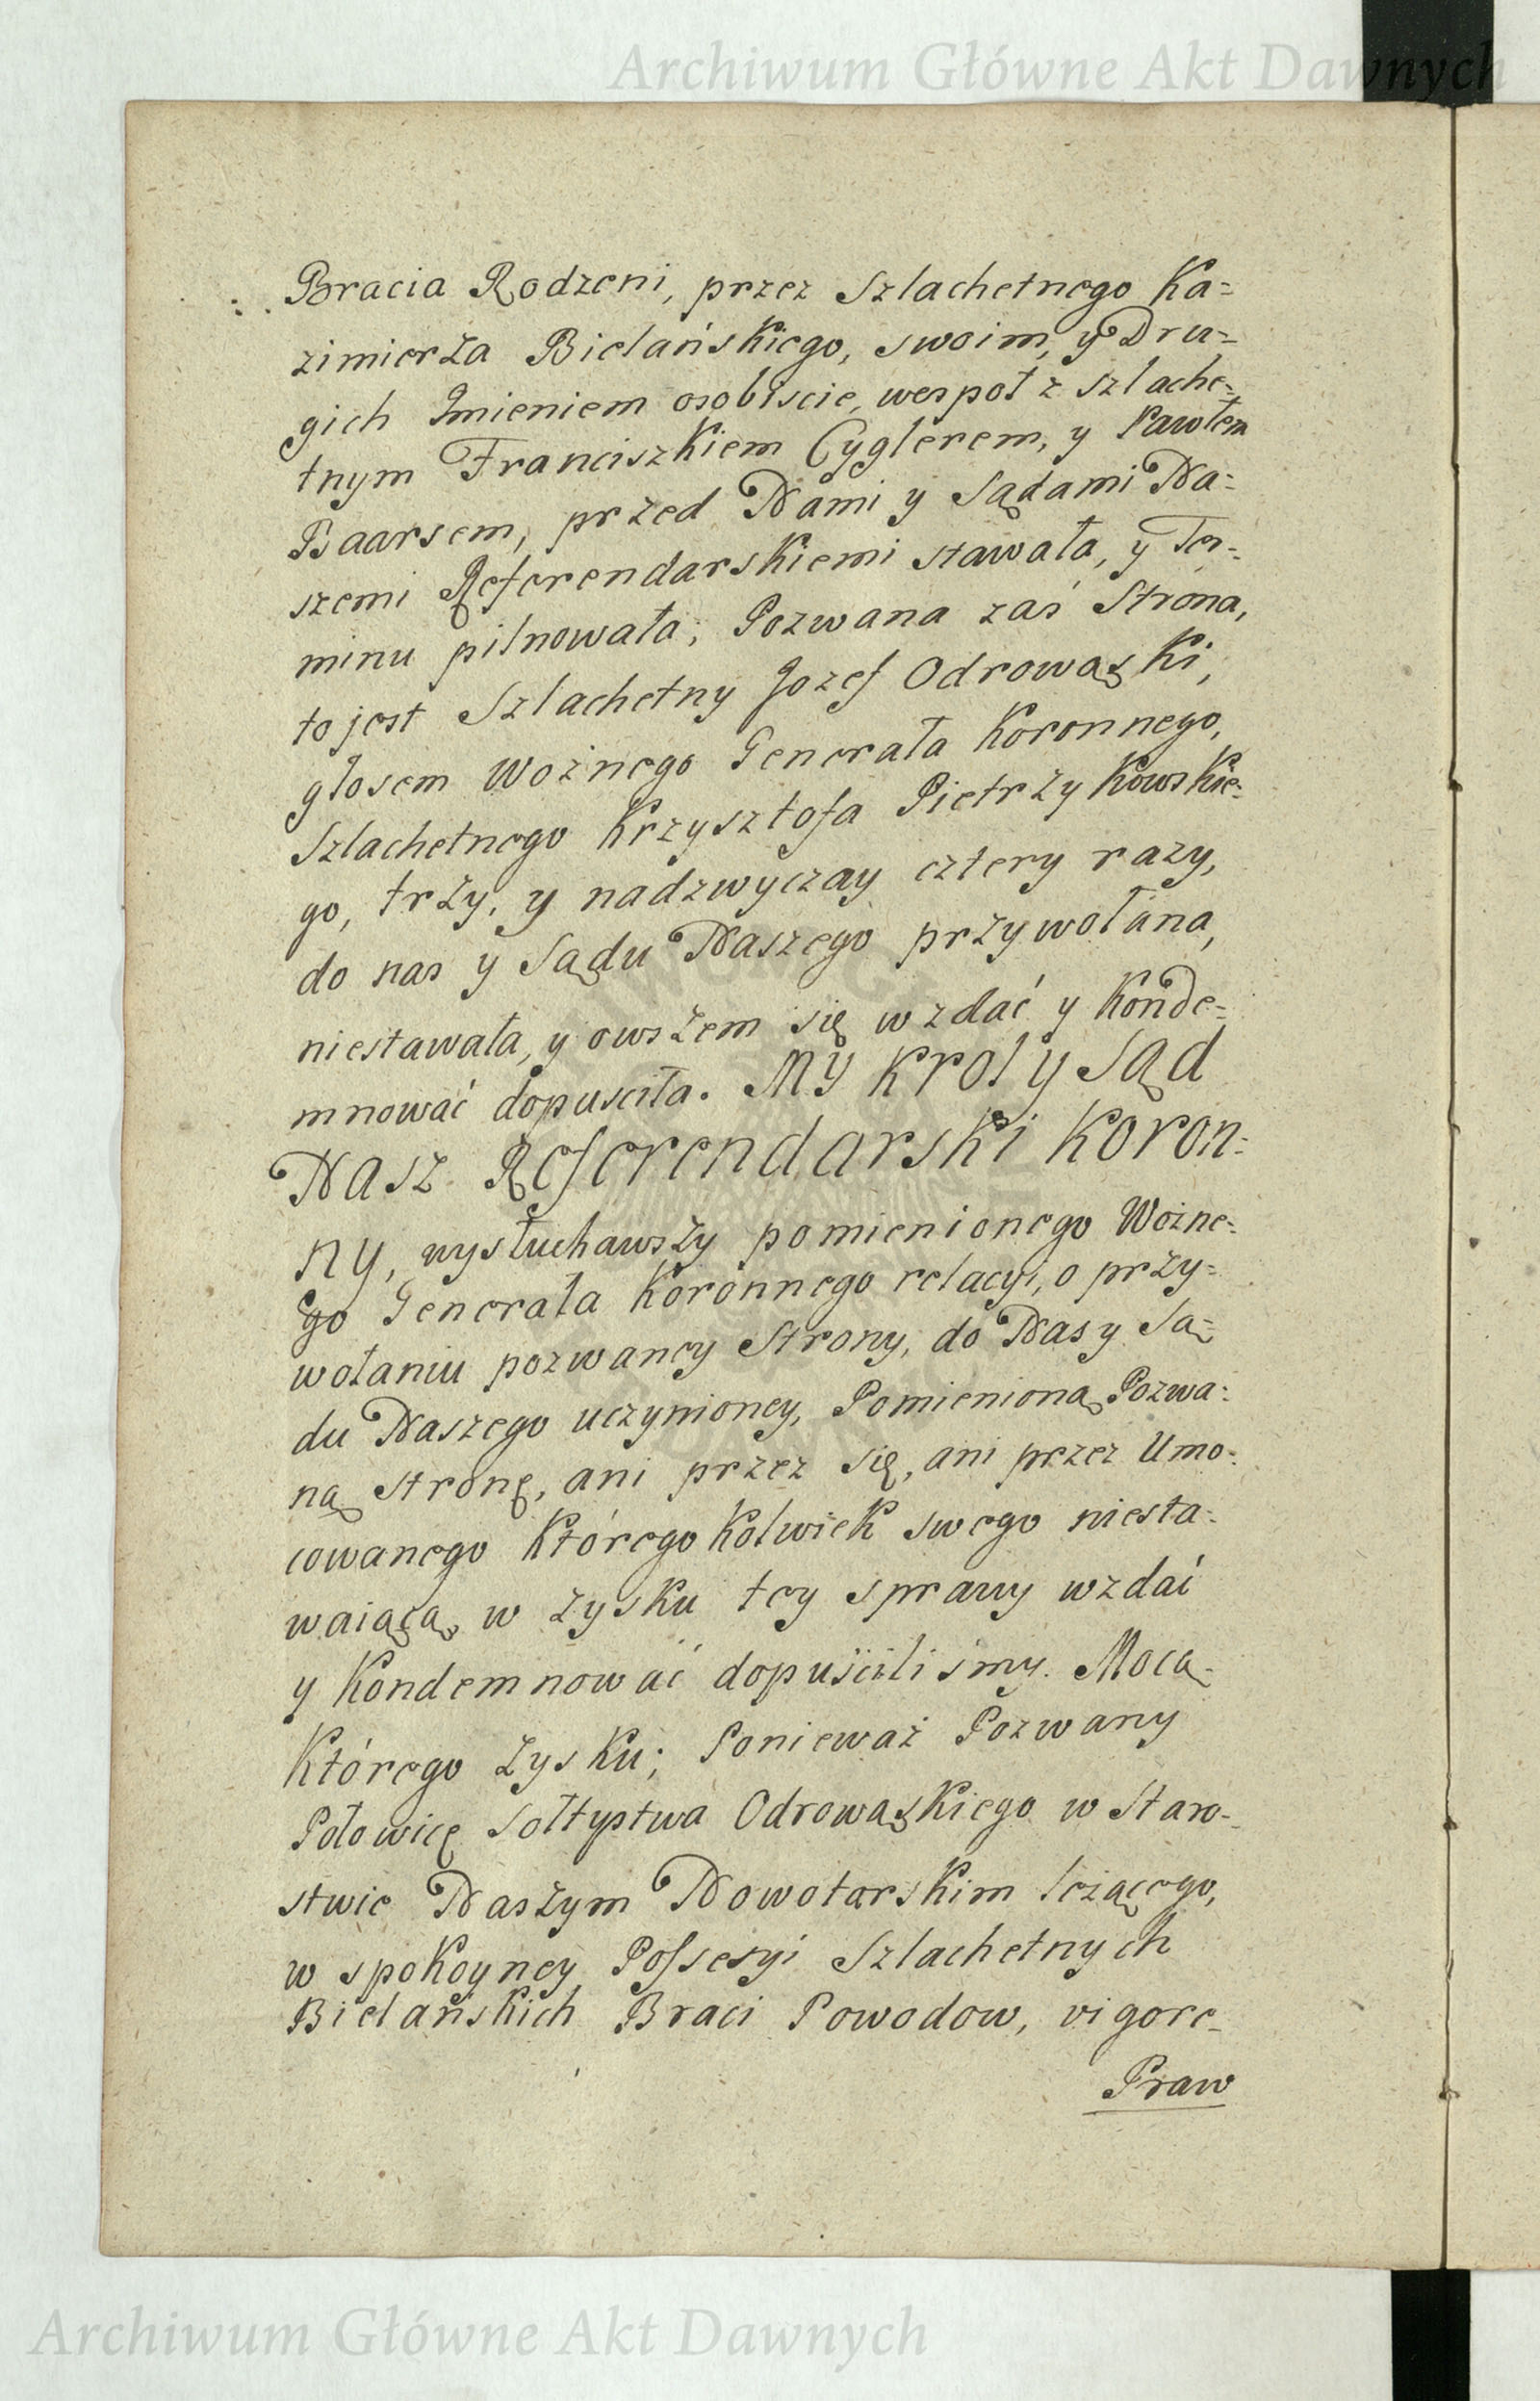 Archiwum Główne Akt Dawnych
Bracia Rodzeni, przez Szlachetnego Ka=
zimierza Bielańskiego, swoim, y Dru=
gich Imieniem osobiscie, wespoł z Szlache=
tnym Franciszkiem Cyglerem, y Pawłem
Baarsem, przed Nami y Sądami Na=
szemi Referendarskiemi stawała, y Ter=
minu pilnowała; Pozwana zaś Strona,
to jest Szlachetny Jozef Odrowąski,
głosem Woźnego Generała Koronnego,
Szlachetnego Krzysztofa Pietrzykowskie=
go, trzy, y nadzwyczay cztery razy,
do nas y Sądu Naszego przywołana,
niestawała, y owszem się wzdać y Konde=
mnować dopusciła. My Krol y Sąd
Nasz Referendarski Koron=
ny, wysłuchawszy pomienionego Woźne=
go Generała Koronnego relacyi, o przy=
wołaniu pozwaney Strony, do Nas y Są=
du Naszego uczynioney, Pomienioną Pozwa=
ną Stronę, ani przez się, ani przez Umo=
cowanego któregokolwiek swego niesta=
waiącą, w zysku tey sprawy wzdać
y Kondemnować dopuściliśmy. Mocą
którego zysku; Ponieważ Pozwany
Połowicę Sołtystwa Odrowąskiego w Staro=
stwie Naszym Nowotarskim leżącego,
w spokoyney Possesyi Szlachetnych
Bielańskich Braci Powodow, vigore
Praw
Archiwum Główne Akt Dawnych